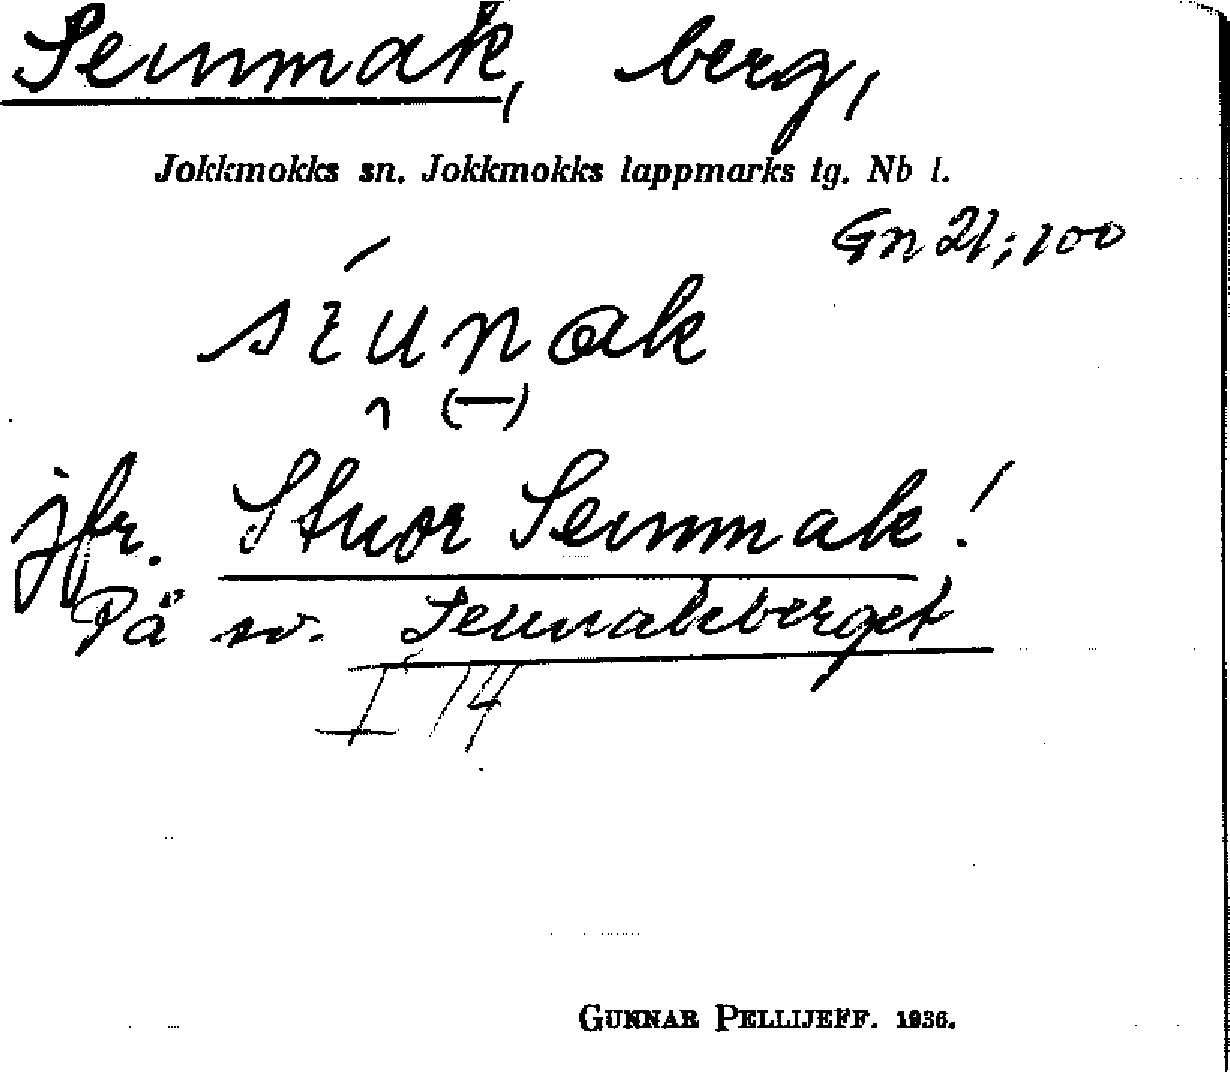 Seunnak, berg,
Jokkmokks sn. Jokkmokks lappmarks tg. Nb l.
Gn 21; 100
jfr. Stuor Seunnak!
På sv. Seunnakberget
I 14
GUNNAR PELLIJEFF. 1936.